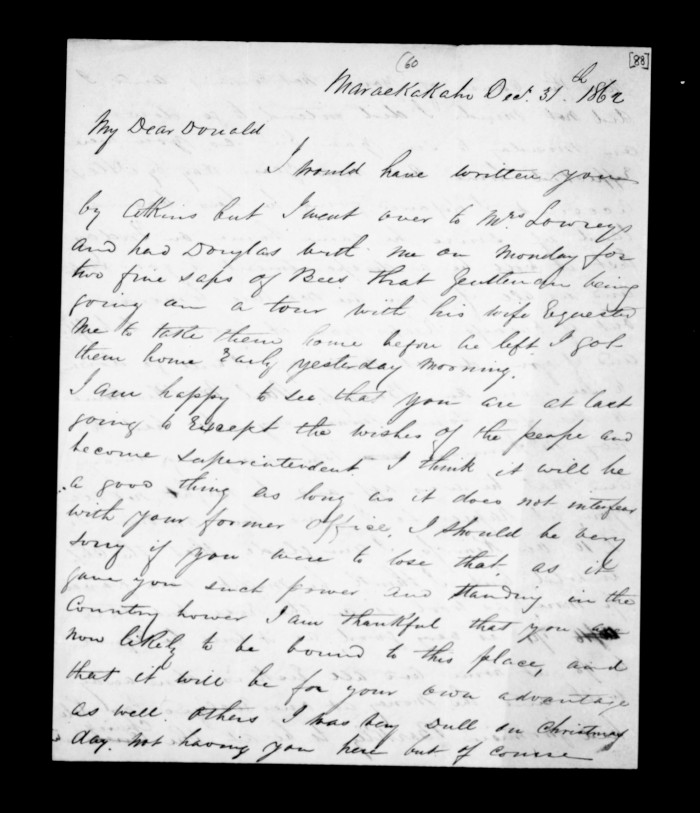 (60
[88]
Maraekakaho Decr. 31.th 1862
My Dear Donald
I would have written you
by Atkins but I went over to Mrs Lowreys
and had Douglas with me on Monday for
two fine saps of Bees that Gentleman being
going on a tour with his wife Equested
Me to take them home before he left I got
them home Early yesterday Morning.
I am happy to see that you are at last
going to Except the wishes of the peope and
become Superintendent I think it will be
a good thing as long as it does not interfear
with your former office, I should be very
sorry if you were to lose that as it
gave you such power and standing in the
Country hower I am thankful that you are
now likely to be bound to this place, and
that it will be for your own advantage
as well others I was very Dull on Christmas
day. not having you here but of course